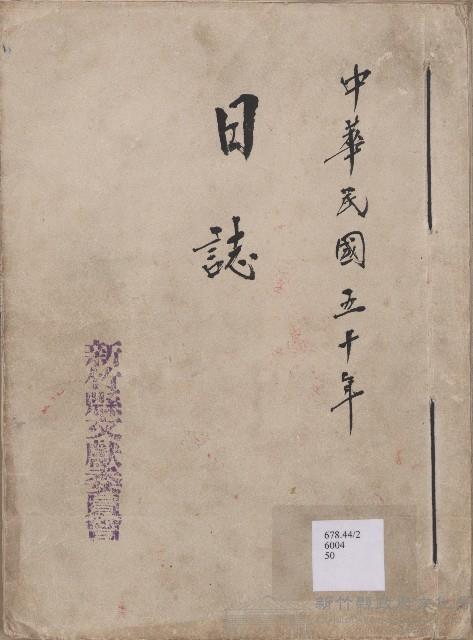 中華民國五十年
日誌
新竹縣文獻委員會
678.44/2
6004
50
新竹縣政府文化局